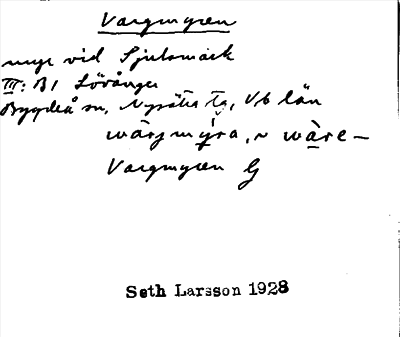 Vargmyren
myr vid Sjulsmark
III: B1 Lövånger
Bygdeå sn, Nysätra tg, Vb län
wàrgmy̨ra, ~ wàre-
Vargmyren G
Seth Larsson 1928